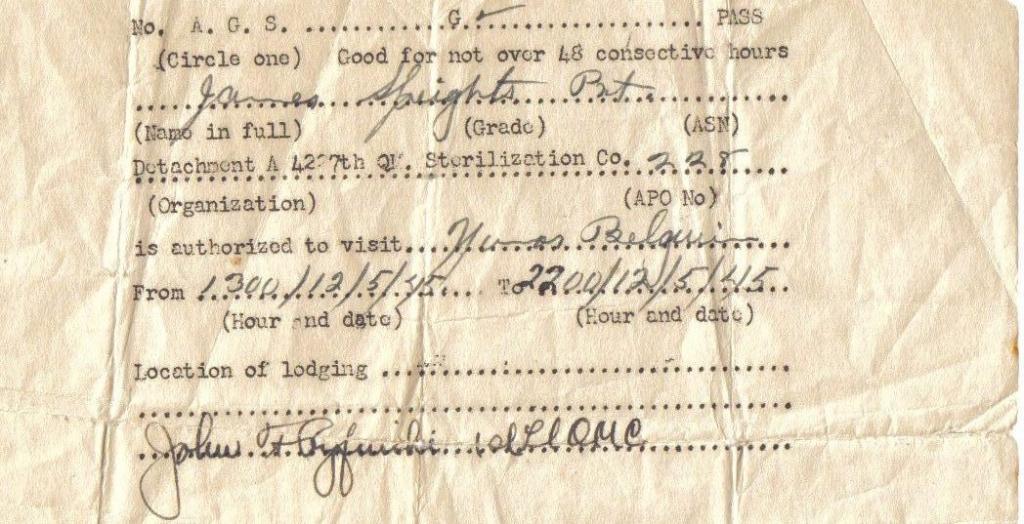 No. A. G. S. .................. G. .......................... PASS
(Circle one) Good for not over 48 consective hours
James Speights Pvt.
(Name in full) (Grade) (ASN)
Detachment A 4227th QM. Sterilization Co. 228
(Organization) (APO No)
is authorized to visit.... Belguim
From 1300/12/5/45 To 2200/12/5/45
(Hour and date) (Hour and date)
Location of lodging ..............................
John F. 1st Lt QMC